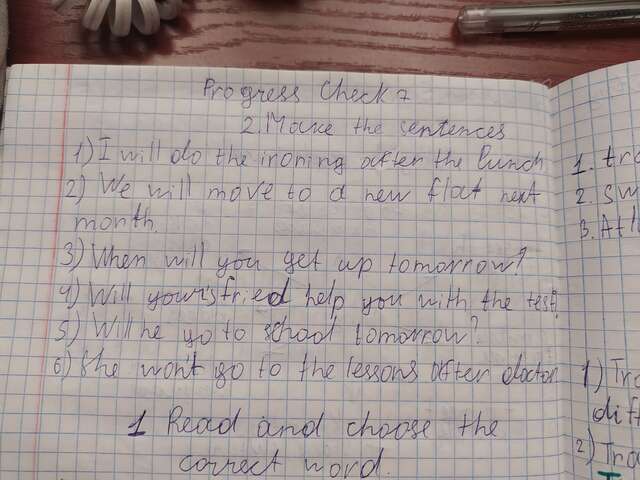 Progress Check 7
2. Make the sentences
1) I will do the ironing after the lunch
2) We will move to a new flat next
month.
3) When will you get up tomorrow?
4) Will your friend help you with the test?
5) Will he go to school tomorrow?
6) She won't go to the lessons after doctor
1 Read and choose the
correct word.
1. tra
2. sw
3. At l
1) Tra
diff
2) Tra